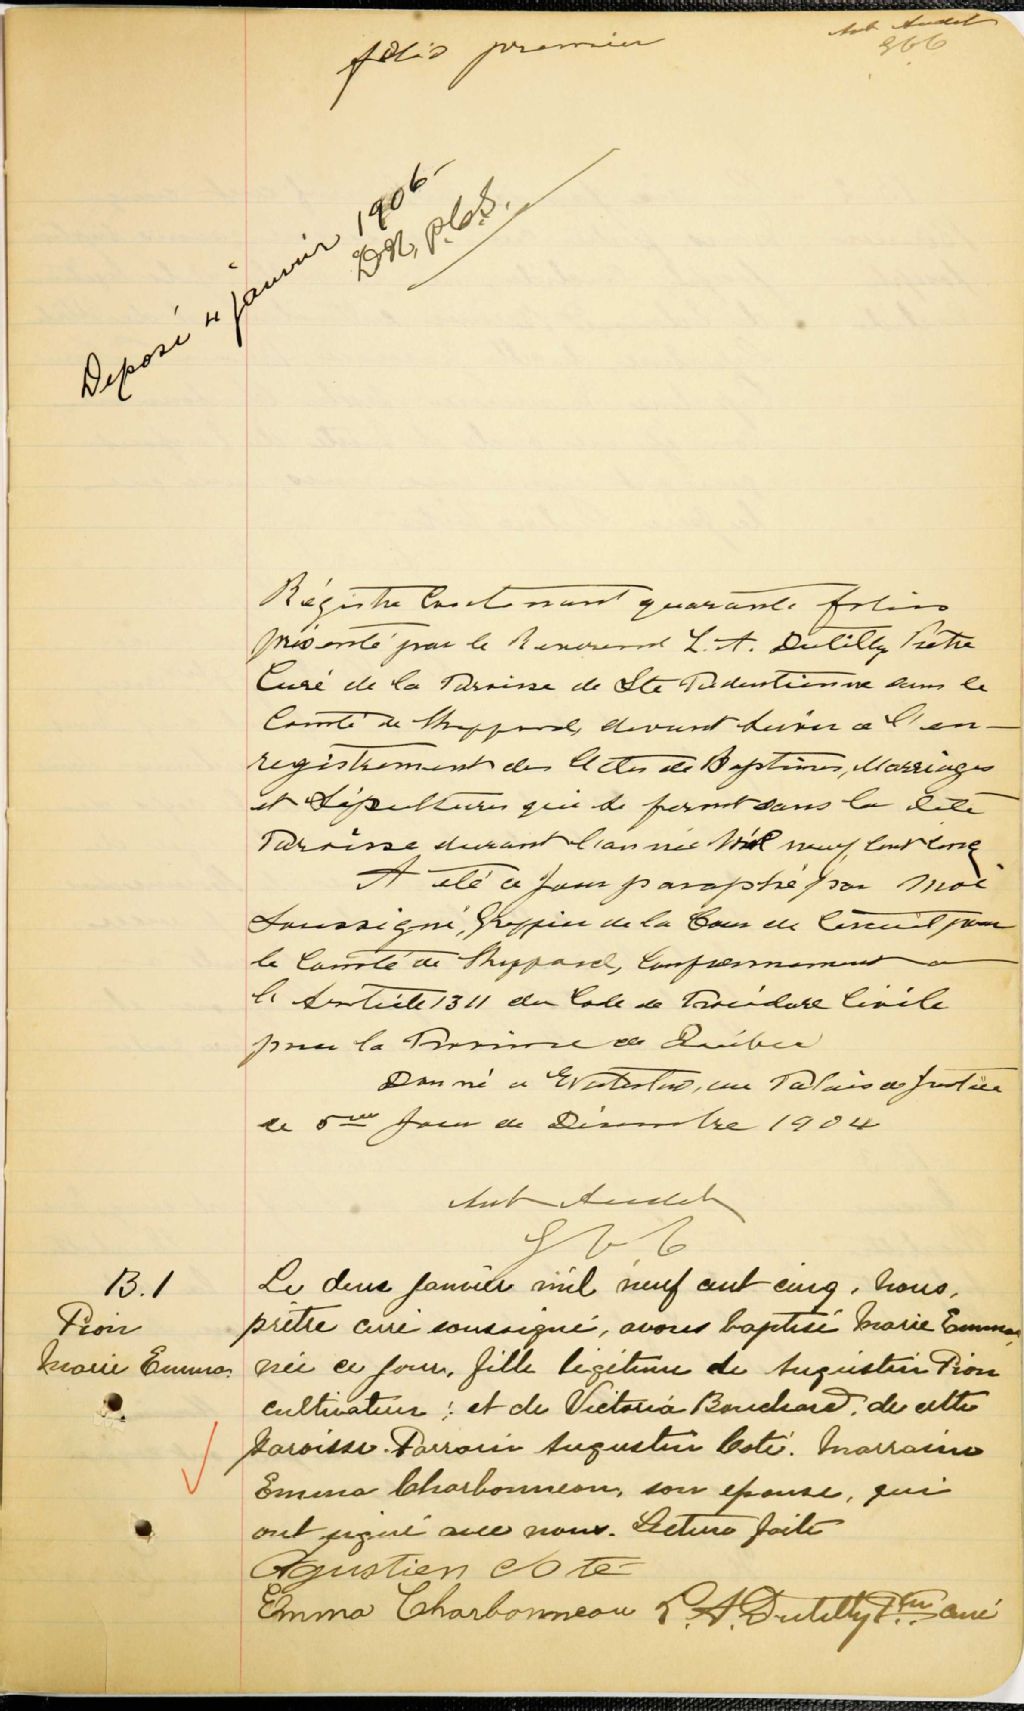 folio premier
Ant Audet
GCC
Deposé 4 janvier 1906-
DN, P.C.S.
Régistre Contenant quarante folios
présenté par le Reverend L. A. Dutilly Prêtre
Curé de la Paroisse de Ste Pudentienne dans le
Comté de Shefford, devant servir a l'en-
registrement des Actes de Baptêmes, Marriages
et Sépultures qui se feront dans la dite
Paroisse durant l'année Mil neuf Cent Cinq
A été ce Jour paraphé par Moi
Soussigné, Greffier de la Cour de Circuit pour
le Comté de Shefford, Conformement a
l'Article 1311 du Code de Procédure Civile
pour la Province de Québec
Donné a Waterloo, au Palais de Justice
ce 5me Jour de Décembre 1904
Ant Audet
GCC
B.1
Pion
Marie Emma.
Le deux Janvier mil neuf cent cinq, Nous,
prêtre curé soussigné, avons baptisé Marie Emma,
née ce jour, fille légitime de Augustin Pion
cultivateur ; et de Victoria Bouchard, de cette
paroisse. Parrain Augustin Coté. Marraine
Emma Charbonneau, son epouse, qui
ont signé avec nous. Lecture faite
Agustien Coté
Emma Charbonneau L. A. Dutilly Ptre curé